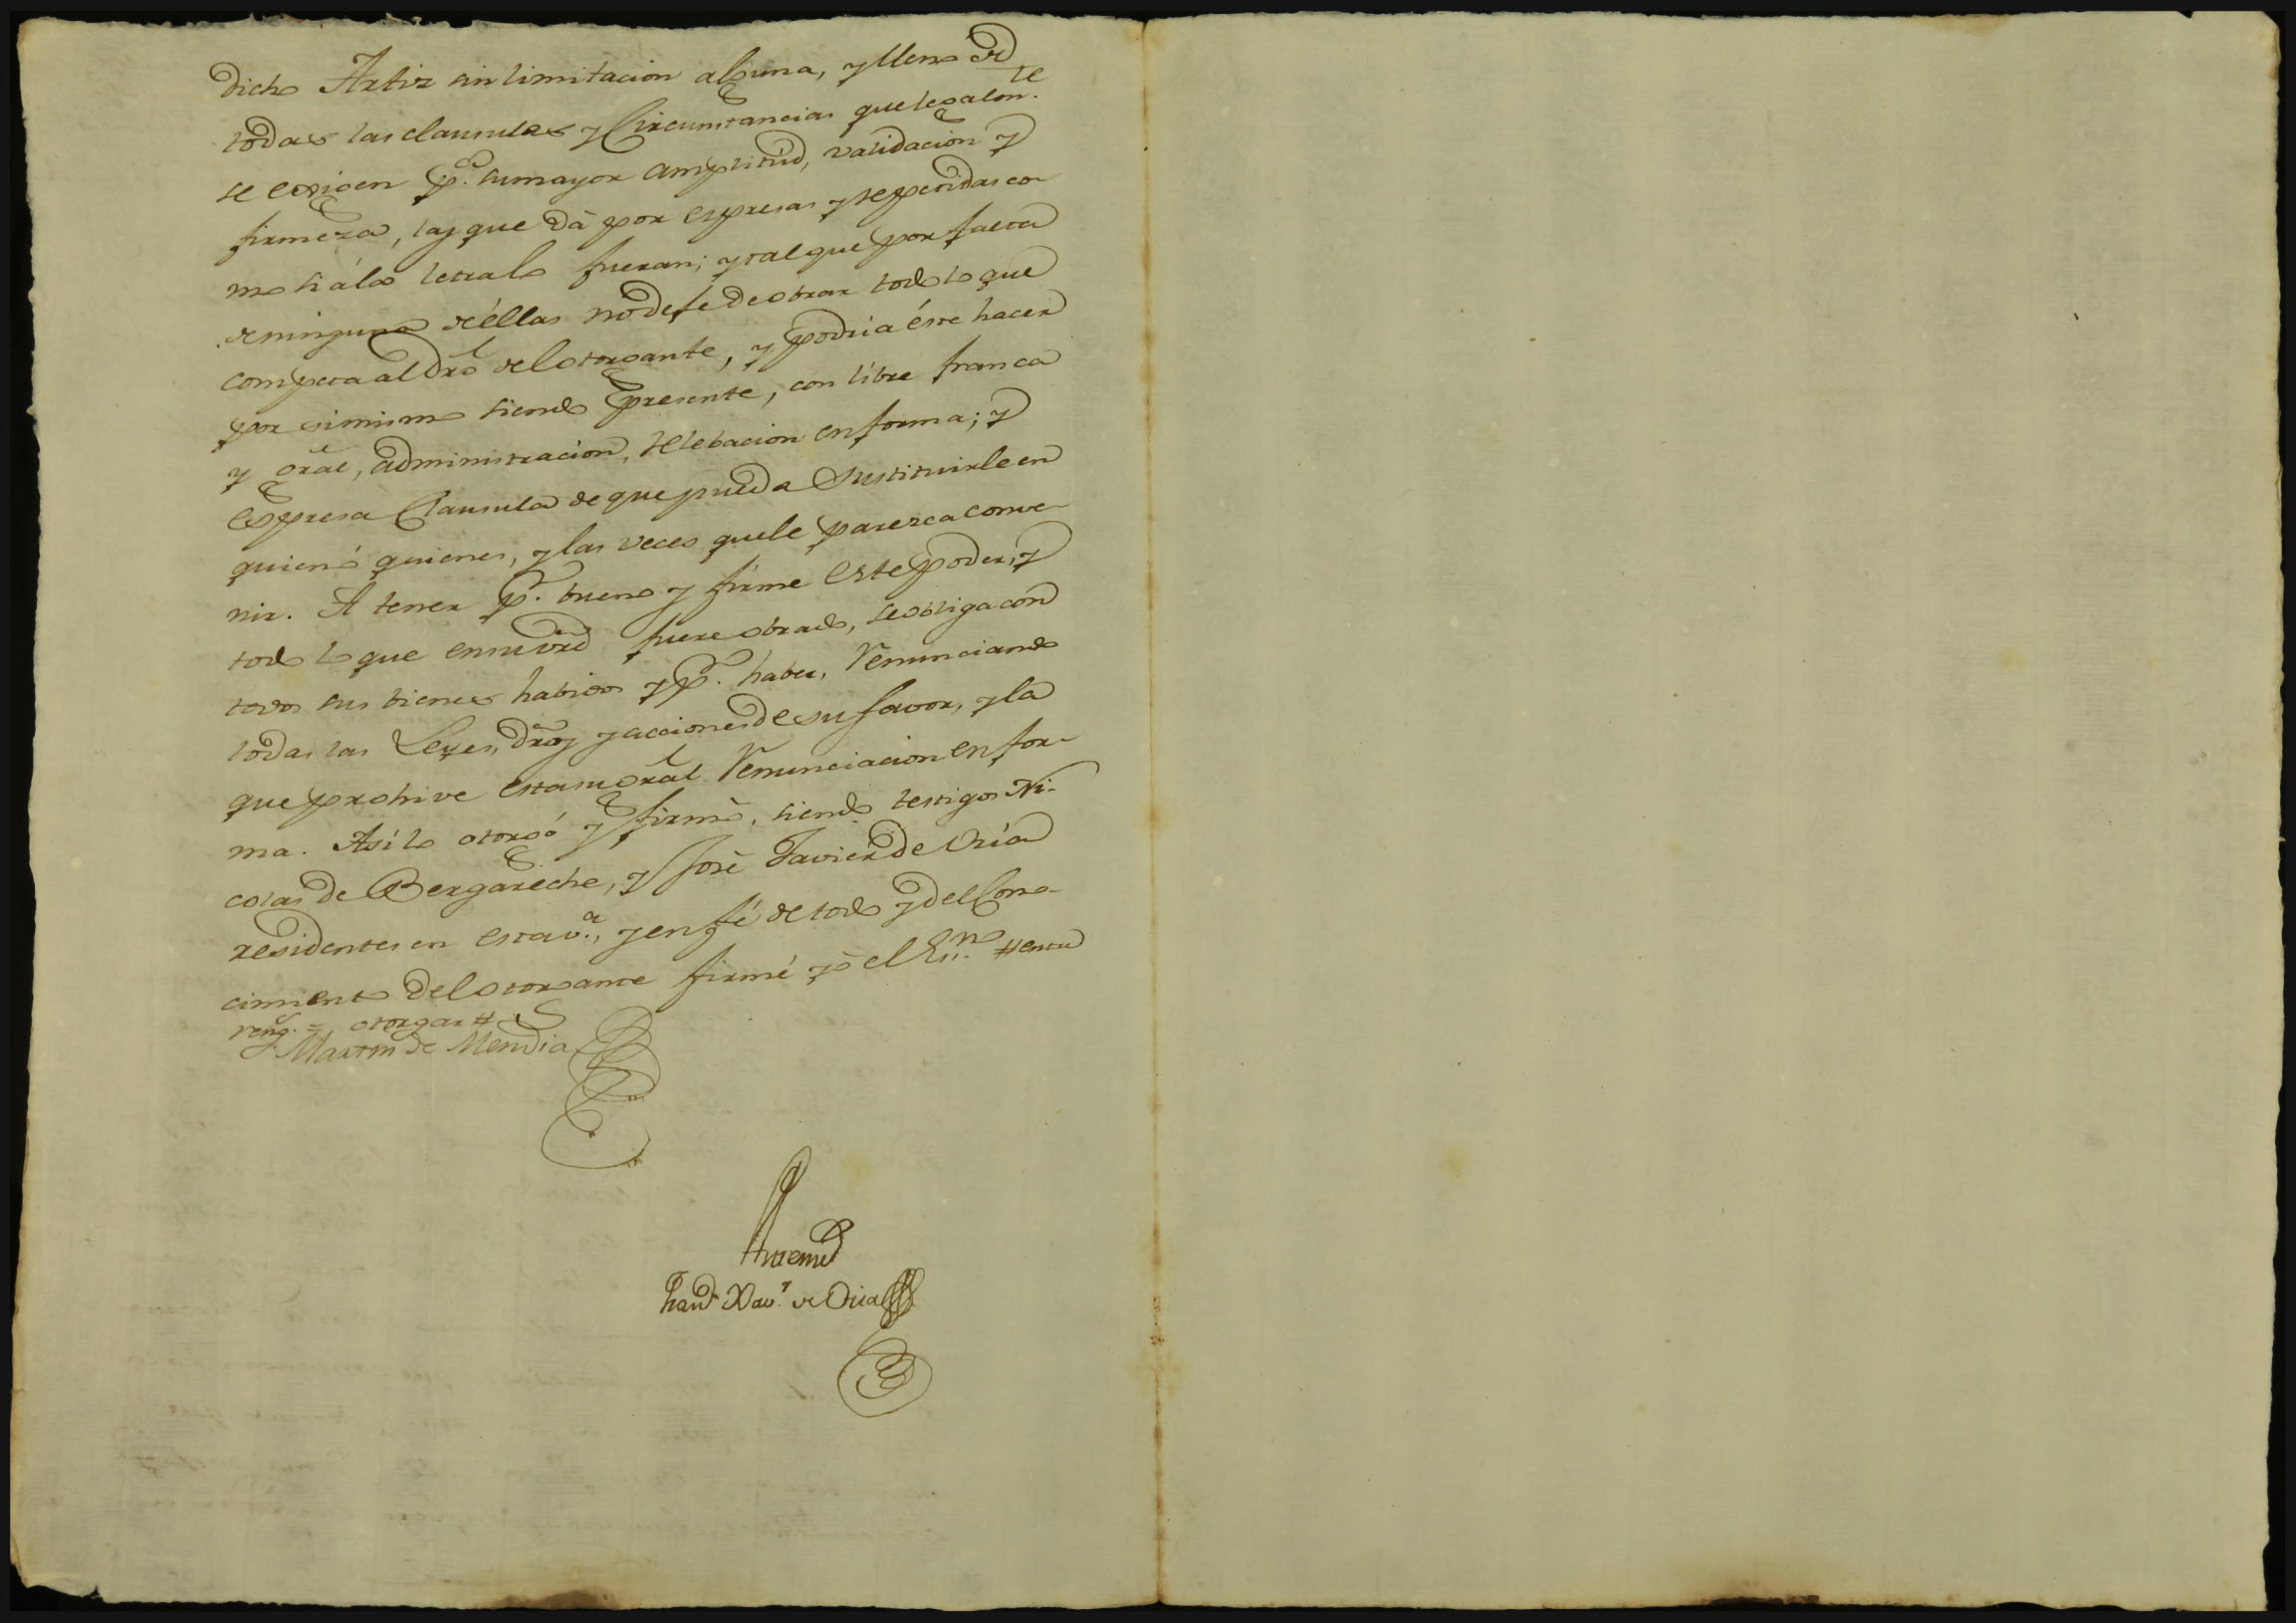 dicho Artiz sin limitacion alguna, y lleno de
todas las clausulas y Circunstancias que legalm.te
se exigen p.a su mayor amplitud, validacion y
firmeza, las que dá por espresas y repetidas co-
mo si á la letra lo fueran; y tal que por falta
de ninguna de éllas no deje de obrar todo lo que
competa al dro del otorgante, y podria éste hacer
por si mismo siendo presente, con libre franca
y gral, administracion, relebacion en forma; y
espresa Clausula de que pueda Sustituirle en
quien ó quienes, y las veces que le parezca conve-
nir. A tener p.r bueno y firme este poder, y
todo lo que en su vrd fuere obrado, se obliga con
todos sus bienes habidos y p.r haber, Renunciando
todas las Leyes, dros y acciones de su favor, y la
que prohive esta su gral Renunciacion en for-
ma. Asi lo otorgó y firmó, siendo testigos Ni-
colas de Bergareche, y José Javier de Oria
residentes en esta v.a, y en fé de todo y del Cono-
cimiento del otorgante firmé yo el Ess.no # entre
reng.s = otorgar #
Martin de Mendia
Ante mi
Xav.r de Oria